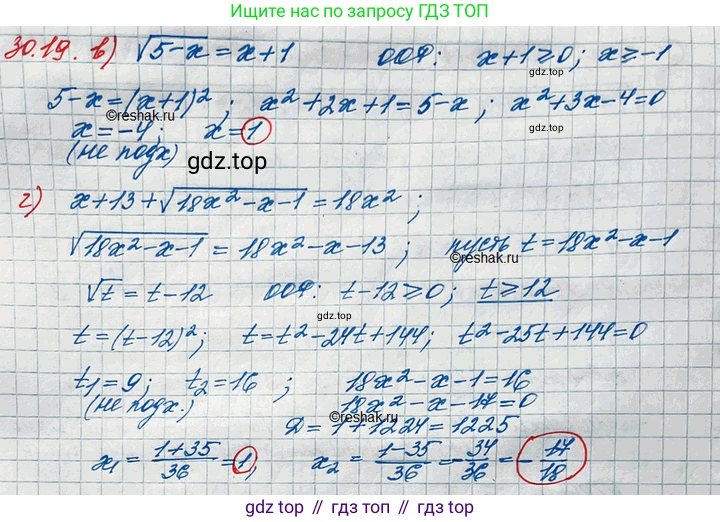 Ищите нас по запросу ГДЗ ТОП
30.19. в) √(5-x) = x+1 ООФ: x+1≥0; x≥-1
gdz.top
5-x=(x+1)²; x²+2x+1=5-x; x²+3x-4=0
©reshak.ru
x=-4; x=1
(не подх)
gdz.top
г) x+13+√(18x²-x-1)=18x²;
√(18x²-x-1) = 18x²-x-13; пусть t=18x²-x-1
©reshak.ru
©reshak.ru
√t=t-12 ООФ: t-12≥0; t≥12
gdz.top
t=(t-12)²; t=t²-24t+144; t²-25t+144=0
t₁=9; t₂=16; 18x²-x-1=16
(не подх.) 18x²-x-17=0
©reshak.ru
Д=1+1224=1225
x₁=(1+35)/36=1; x₂=(1-35)/36=-34/36=-17/18
gdz.top // гдз.топ // gdz.top // гдз.топ